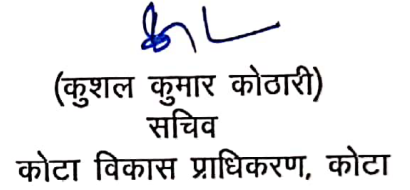 (कुशल कुमार कोठारी)
सचिव
कोटा विकास प्राधिकरण, कोटा